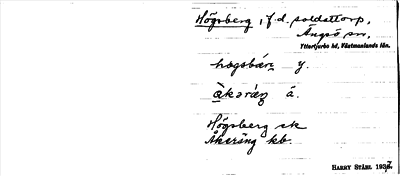 Högsberg, f.d. soldattorp,
Ängsö sn,
Yttertjurbo hd, Västmanlands län.
hogsbær̨ y.
àkərǽŋ ä.
Högsberg sk
Åkeräng kb.
HARRY STÅHL 1937.